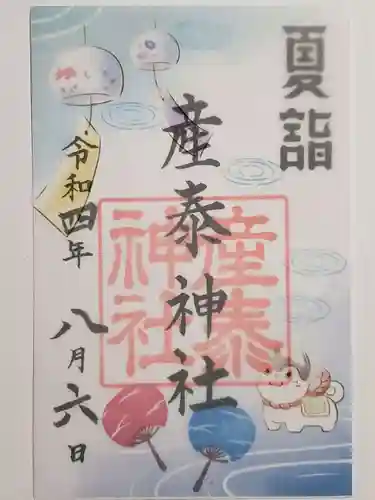 夏詣
産泰神社
産泰神社
令和四年
八月六日